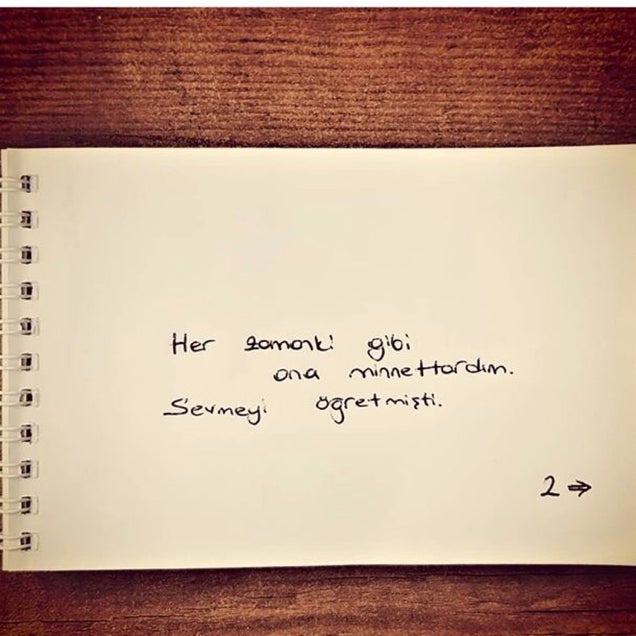 Her zamanki gibi
ona minnettardım.
Sevmeyi öğretmişti.
2 ⇒